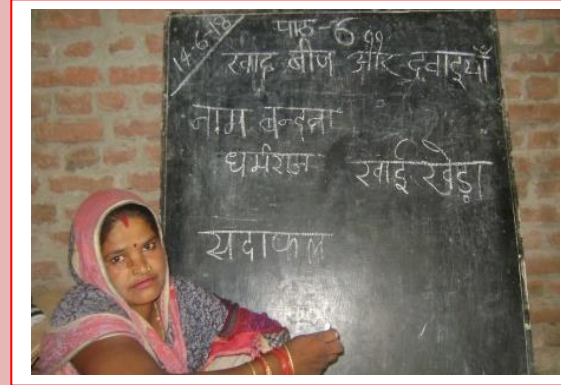 14-6-18
पाठ-6
खाद बीज और दवाइयाँ
नाम बन्दना
धर्मराज खाई खेड़ा
सदाफल